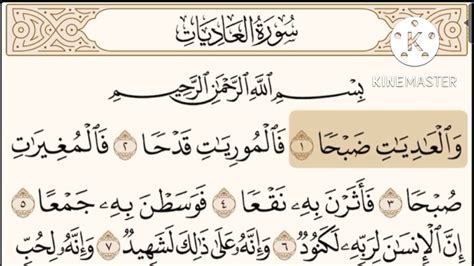 سُورَةُ العَادِيَاتِ
KINEMASTER
بِسْمِ ٱللَّهِ ٱلرَّحْمَٰنِ ٱلرَّحِيمِ
وَٱلْعَٰدِيَٰتِ ضَبْحًا ١ فَٱلْمُورِيَٰتِ قَدْحًا ٢ فَٱلْمُغِيرَٰتِ
صُبْحًا ٣ فَأَثَرْنَ بِهِۦ نَقْعًا ٤ فَوَسَطْنَ بِهِۦ جَمْعًا ٥
إِنَّ ٱلْإِنسَٰنَ لِرَبِّهِۦ لَكَنُودٌ ٦ وَإِنَّهُۥ عَلَىٰ ذَٰلِكَ لَشَهِيدٌ ٧ وَإِنَّهُۥ لِحُبِّ